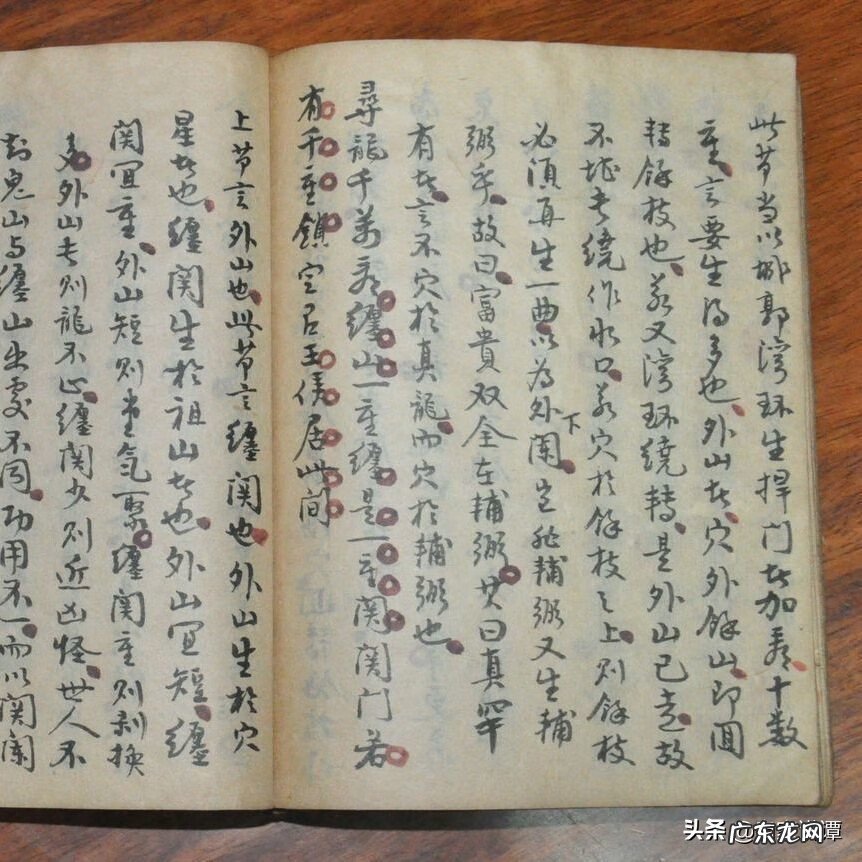 此节当以城郭湾环生捍门者加看十数
重言要生得多也外山者穴外余山即回
转余枝也若又湾环绕转是外山已尽故
不堪长绕作水口若穴於余枝之上则余枝
必须再生一曲以为外阑下岂非辅弼又生辅
弼乎故曰富贵双全在辅弼其曰真罕
有者言不穴於真龙而穴於辅弼也
尋龍千萬看纏山一重纏是一重関関门若
有千重鎖定有王侯居此间
上节言外山也此节言纏関也外山生於穴
星者也纏関生於祖山者也外山宜短纏
関宜重外山短则堂气聚纏関重则剥换
多外山长则龍不止纏関少则近凶怪世人不
知鬼山与纏山出處不同功用不一而以関闌
头条 @广东龙网